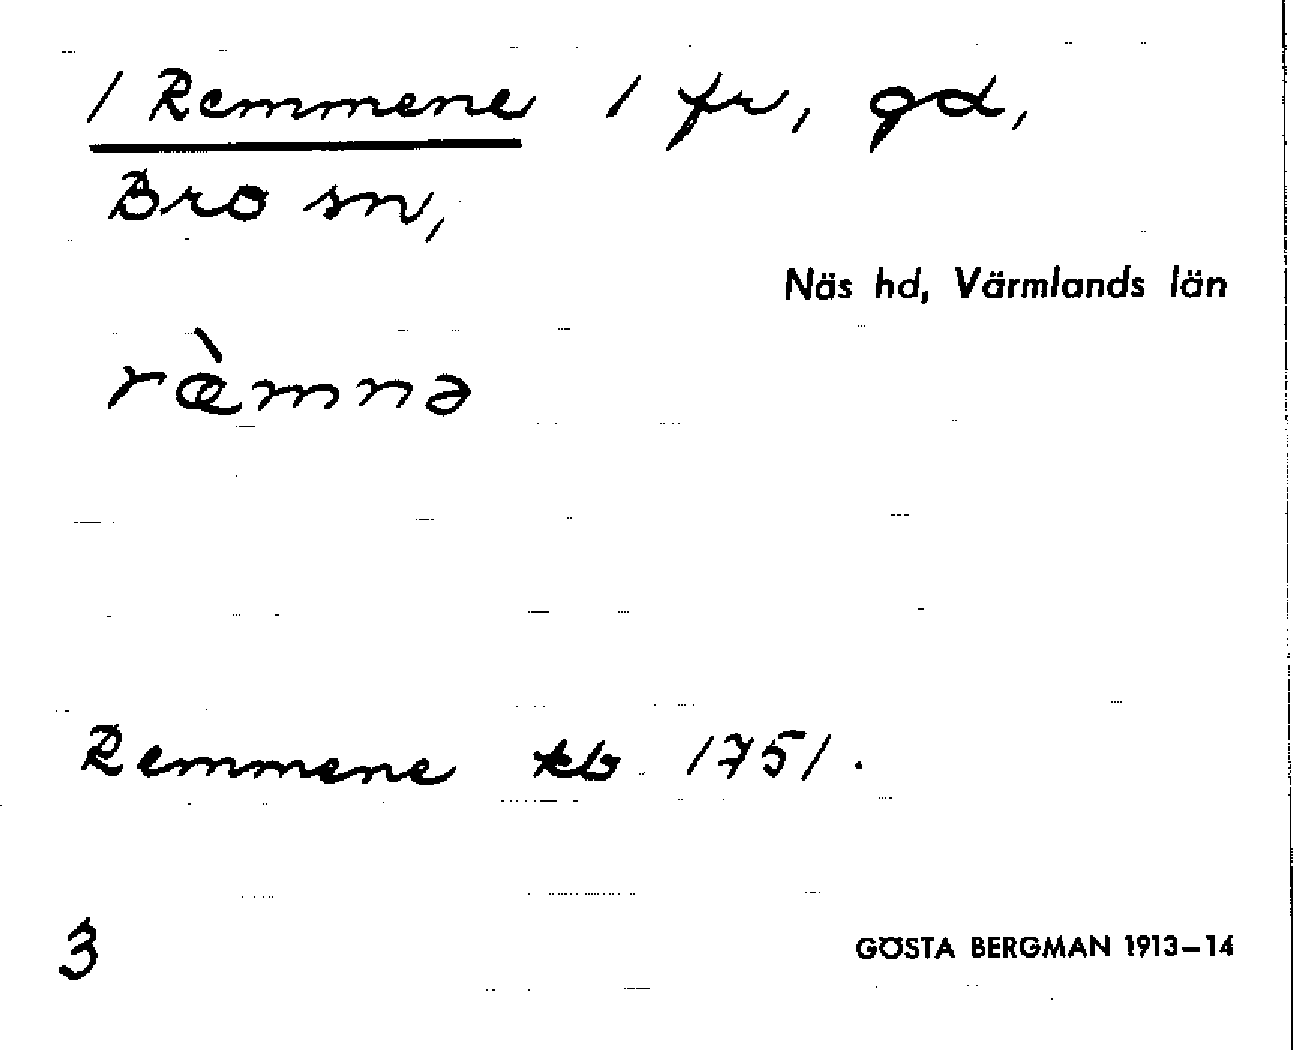 1 Remmene 1 fr, gd,
Bro sn,
Näs hd, Värmlands län
ræ̀mnə
Remmene kb 1751.
3
GÖSTA BERGMAN 1913–14